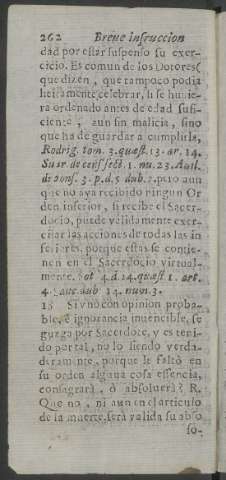 262 Breue instruccion
dad por estàr suspenso su exer-
cicio. Es comun de los Dotores(
que dizen, que tampoco podia
licitamente celebrar, si se huuie-
ra ordenado antes de edad sufi-
ciente, aun sin malicia, sino
que ha de guardar a cumplirla,
Rodrig. tom. 3. quæst. 13. ar. 14.
Suar. de cens. sect. 1. nu. 23. Auil.
de cens. 3. p. d. 5 dub. 2. pero aun
que no aya recibido ningun Or
den inferior, si recibe el Sacer-
docio, puede validamente exer-
citar las acciones de todas las in
feriores, porque estas se contie-
nen en el Sacerdocio virtual-
mente. Sot 4. d. 24. quæst. 1. art.
4. dub. 14. num. 3.
15 Si vno con opinion proba-
ble, è ignorancia inuencible, se
juzga por Sacerdote, y es teni-
do por tal, no lo siendo verda-
deramente, porque le faltò en
su orden alguna cosa essencia,
consagrarà, ò absoluerà? R.
Que no, ni aun en el articulo
de la muerte, serà valida su abso
so-